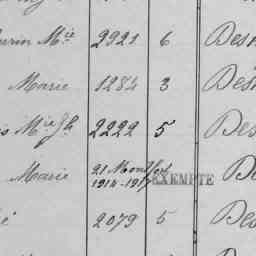 urin Mie 2921 6 Des
Marie 1284 3 Des
is Mie Jh 2222 5 Des
Marie 21 1914-1917 EXEMPTE
é 2079 5 Des